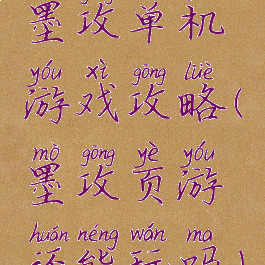 墨攻单机
yóu xì gōng lüè
游戏攻略(
mò gōng yè yóu
墨攻页游
huán néng wán ma
还能玩吗)